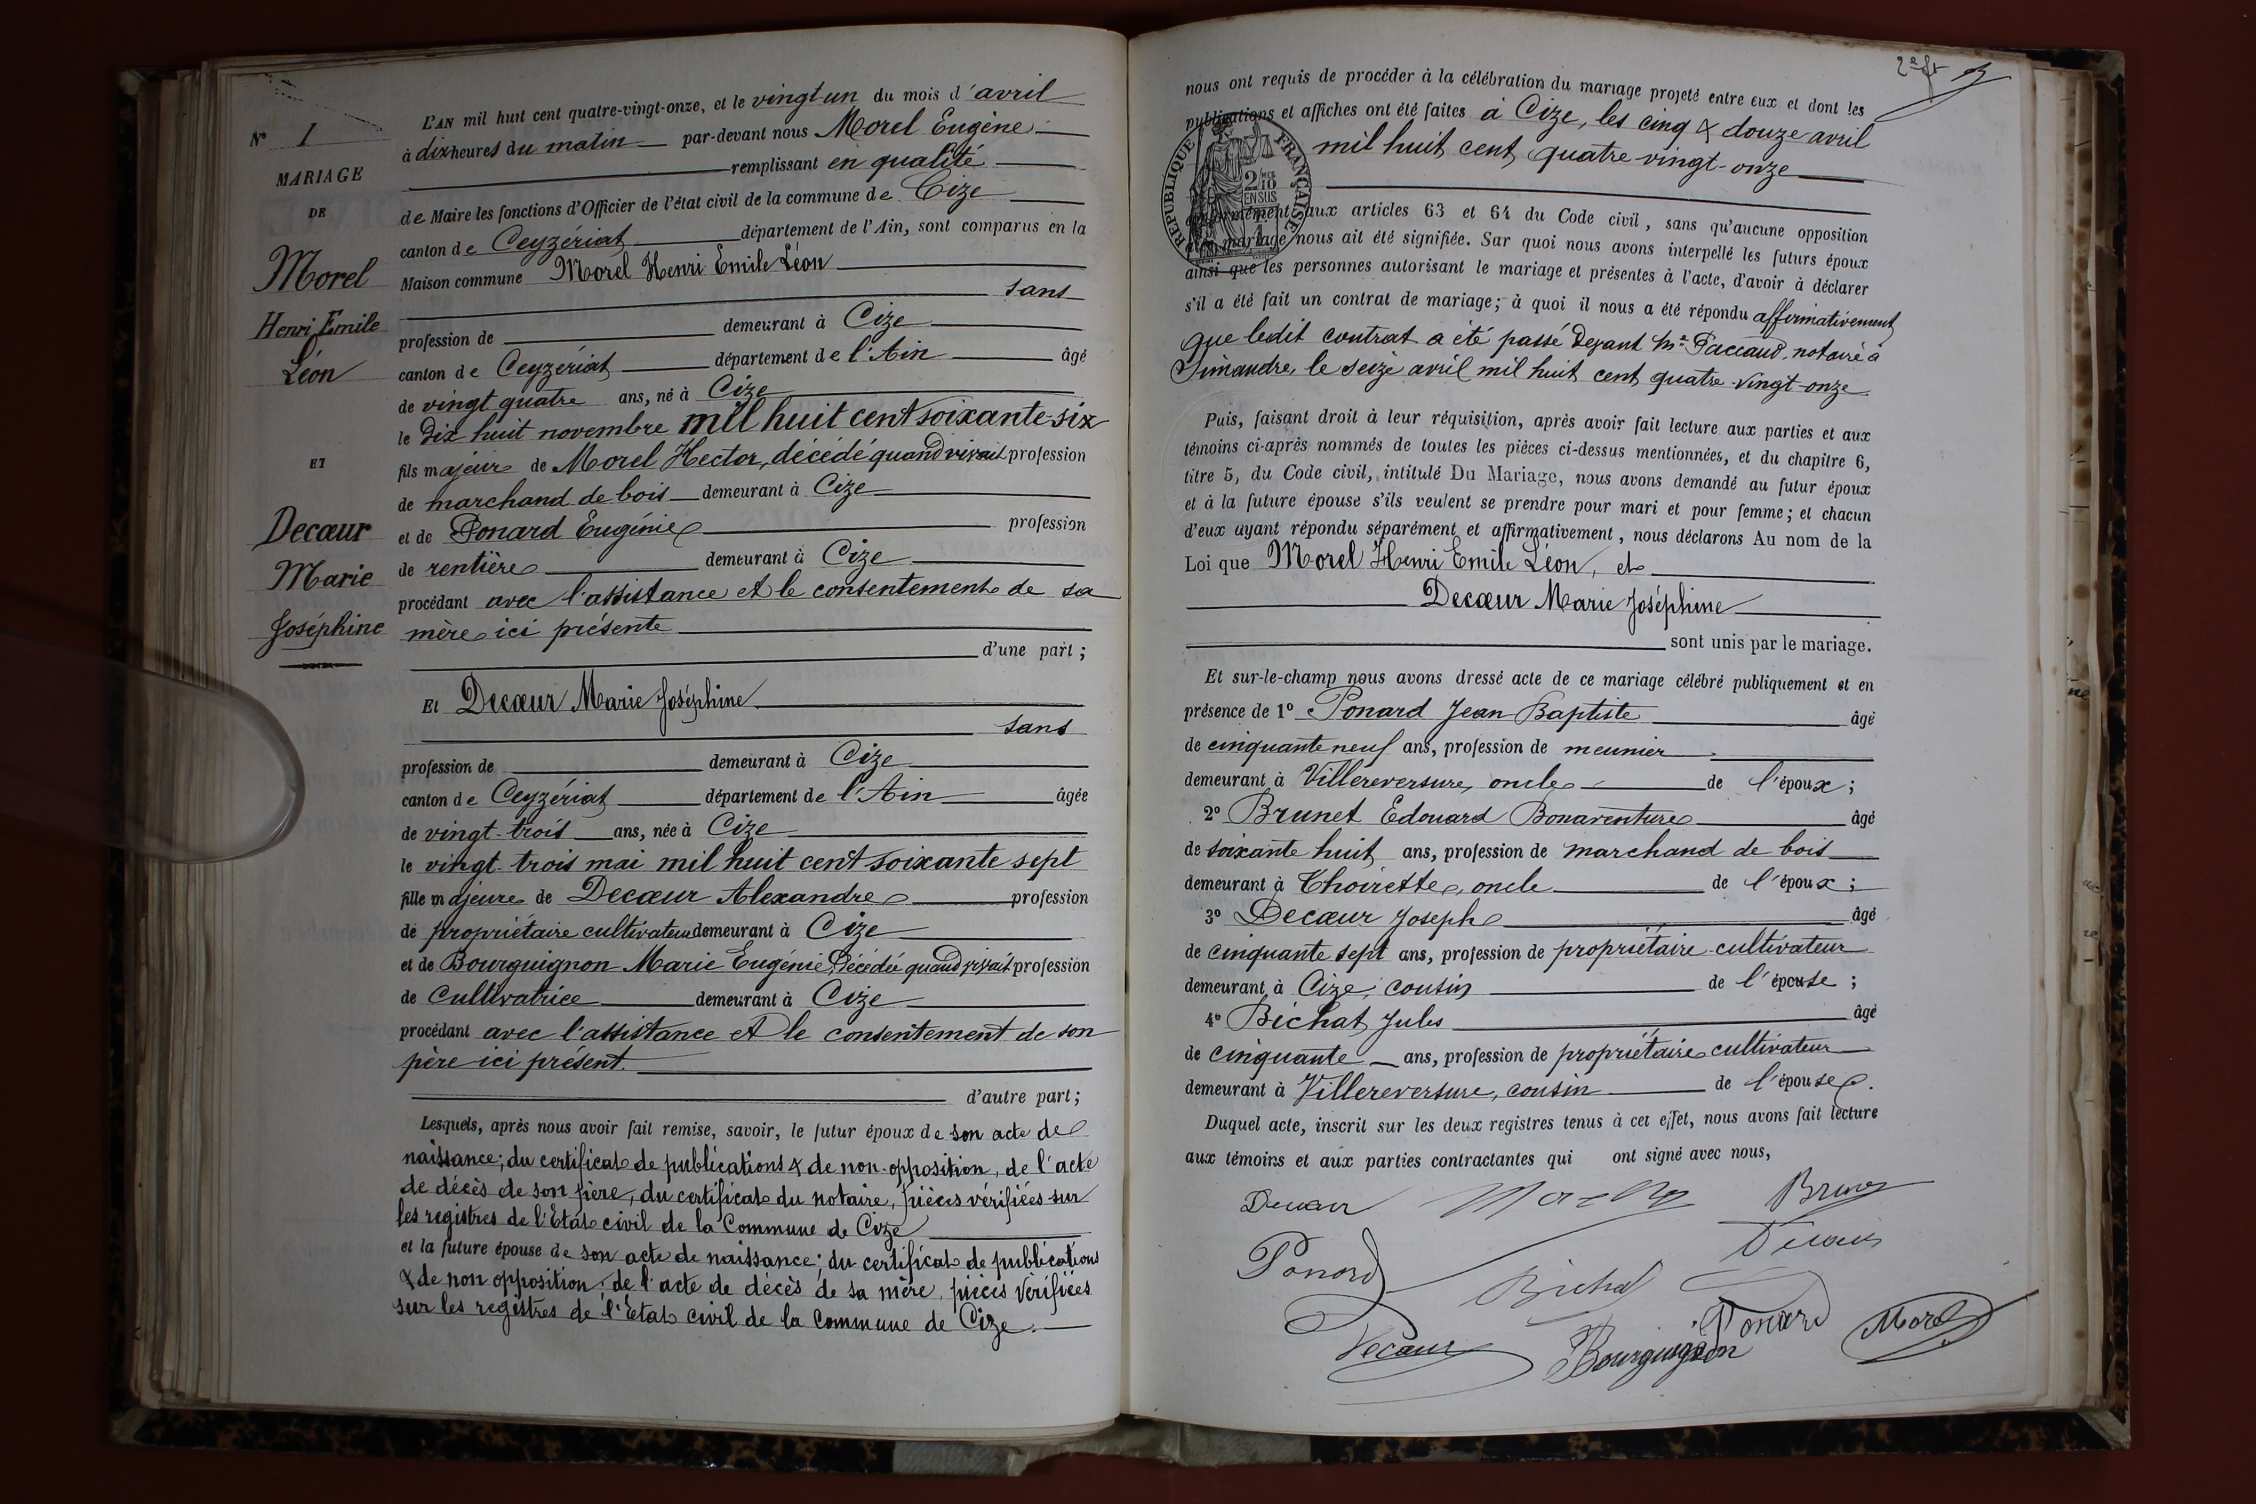 N° 1
MARIAGE
DE
Morel
Henri Emile
Léon
ET
Decœur
Marie
Joséphine
L'AN mil huit cent quatre-vingt-onze, et le vingt un du mois d'avril
à dix heures du matin par-devant nous Morel Eugène
remplissant en qualité
de Maire les fonctions d'Officier de l'état civil de la commune de Cize
canton de Ceyzériat département de l'Ain, sont comparus en la
Maison commune Morel Henri Emile Léon
sans
profession de demeurant à Cize
canton de Ceyzériat département de l'Ain âgé
de vingt quatre ans, né à Cize
le dix huit novembre mil huit cent soixante-six
fils majeur de Morel Hector, décédé quand vivait profession
de marchand de bois demeurant à Cize
et de Ponard Eugénie profession
de rentière demeurant à Cize
procédant avec l'assistance et le consentement de sa
mère ici présente
d'une part;
Et Decœur Marie Joséphine
sans
profession de demeurant à Cize
canton de Ceyzériat département de l'Ain âgée
de vingt-trois ans, née à Cize
le vingt-trois mai mil huit cent soixante sept
fille majeure de Decœur Alexandre profession
de propriétaire cultivateur demeurant à Cize
et de Bourguignon Marie Eugénie, décédée quand vivait profession
de cultivatrice demeurant à Cize
procédant avec l'assistance et le consentement de son
père ici présent.
d'autre part;
Lesquels, après nous avoir fait remise, savoir, le futur époux de son acte de
naissance; du certificat de publications & de non-opposition, de l'acte
de décès de son père, du certificat du notaire, pièces vérifiées sur
les registres de l'Etat civil de la Commune de Cize
et la future épouse de son acte de naissance; du certificat de publications
& de non opposition, de l'acte de décès de sa mère, pièces vérifiées
sur les registres de l'Etat civil de la Commune de Cize.
nous ont requis de procéder à la célébration du mariage projeté entre eux et dont les
publications et affiches ont été faites à Cize, les cinq & douze avril
mil huit cent quatre-vingt-onze
RÉPUBLIQUE FRANÇAISE
2/10
EN SUS
conformément aux articles 63 et 64 du Code civil, sans qu'aucune opposition
au mariage nous ait été signifiée. Sur quoi nous avons interpellé les futurs époux
ainsi que les personnes autorisant le mariage et présentes à l'acte, d'avoir à déclarer
s'il a été fait un contrat de mariage; à quoi il nous a été répondu affirmativement
que ledit contrat a été passé devant Me Paccaud, notaire à
Simandre, le seize avril mil huit cent quatre-vingt-onze
Puis, faisant droit à leur réquisition, après avoir fait lecture aux parties et aux
témoins ci-après nommés de toutes les pièces ci-dessus mentionnées, et du chapitre 6,
titre 5, du Code civil, intitulé Du Mariage, nous avons demandé au futur époux
et à la future épouse s'ils veulent se prendre pour mari et pour femme; et chacun
d'eux ayant répondu séparément et affirmativement, nous déclarons Au nom de la
Loi que Morel Henri Emile Léon, et
Decœur Marie Joséphine
sont unis par le mariage.
Et sur-le-champ nous avons dressé acte de ce mariage célébré publiquement et en
présence de 1° Ponard Jean Baptiste âgé
de cinquante neuf ans, profession de meunier
demeurant à Villereversure, oncle de l'époux;
2° Brunet Edouard Bonaventure âgé
de soixante huit ans, profession de marchand de bois
demeurant à Thoirette, oncle de l'époux;
3° Decœur Joseph âgé
de cinquante sept ans, profession de propriétaire-cultivateur
demeurant à Cize, cousin de l'épouse;
4° Bichat Jules âgé
de cinquante ans, profession de propriétaire cultivateur
demeurant à Villereversure, cousin de l'épouse.
Duquel acte, inscrit sur les deux registres tenus à cet effet, nous avons fait lecture
aux témoins et aux parties contractantes qui ont signé avec nous,
Decœur
Ponard
Bichat
Decœur
Ponard
Bourguignon
Morel